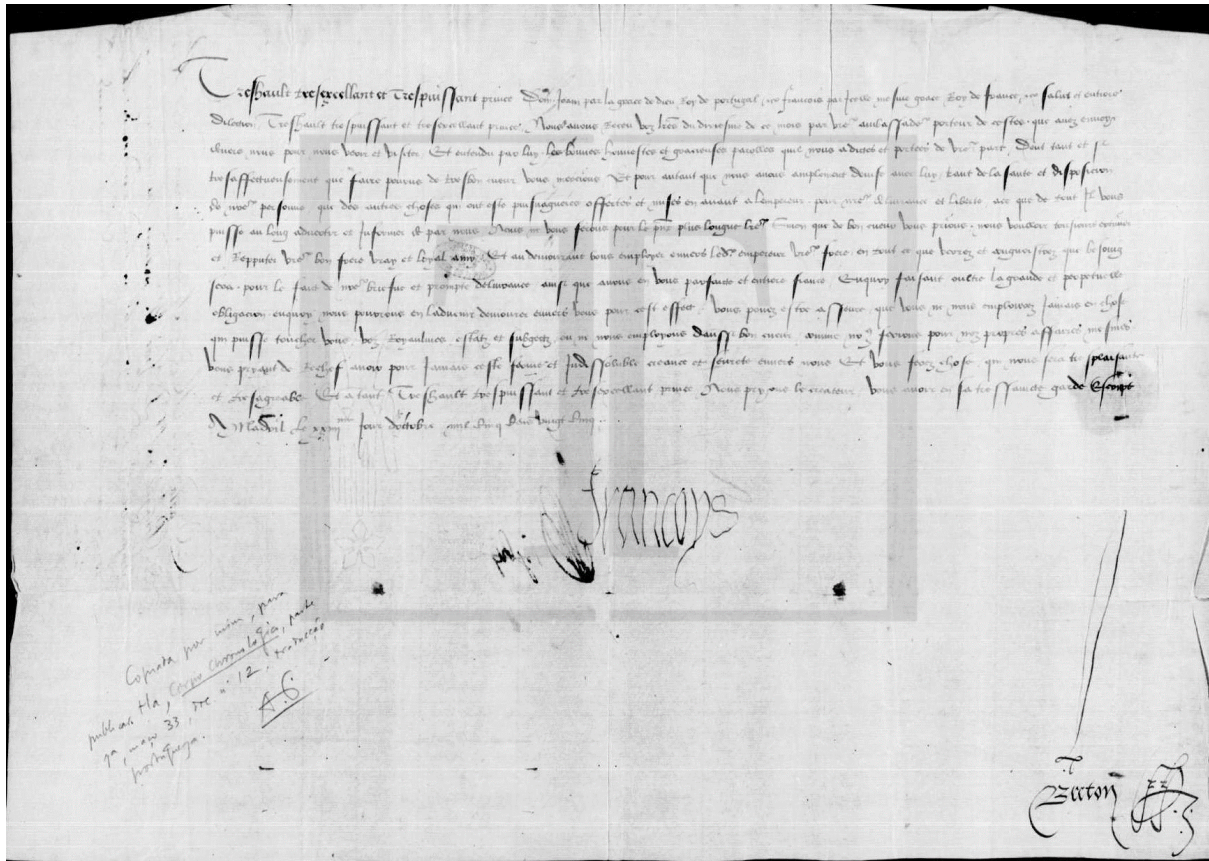 Treshault tresexcellant et Trespuissant prince Don Joam par la grace de dieu Roy de portugal, no francois par icelle mesme grace Roy de france, salut et entiere
dilection, Treshault trespuissant et tresexcellant prince, Nous avons Receu voz lres du dixiesme de ce mois par vre ambassador porteur de cestes, que avez envoyé
devers nous pour nous veoir et visiter, Et entendu par luy les bonnes honnestes et gracieuses parolles quil nous a dictes et portees de vre part, Dont tant et si
tresaffectueusement que faire pouvons de tresbon cueur vous mercions Et pour autant que nous avons amplement devisé avec luy tant de la sante et disposicion
de nre personne, que des autres choses qui ont esté puisnagueres offertes et mises en avant a lempereur pour nre delivrance et liberte, ace que de tout Il vous
puisse au long advertir et Informer de par nous, Nous ne vous ferons pour le pnt plus longue lre, Sinon que de bon cueur vous prions, nous vouloir tousiours
et Repputer vre bon frere vray et loyal amy, Et au demourant vous employer envers led empereur vre frere, en tout ce que verrez et congnoistrez que besoing
sera, pour le fait de nre briefve et prompte delivrance, ainsi que avons en vous parfaicte et entiere fiance, Enquoy faisant oultre la grande et perpetuelle
obligacion enquoy nous pourrons en ladvenir demourer envers vous pour cest effect, vous povez estre asseuré, que vous ne nous emploirez Jamais en chose
qui puisse toucher vous, voz Royaulmes estatz et subgectz, ou ne nous employons daussi bon cueur, comme no ferions pour noz propres affaires mesmes
vous priant de Rechef avoir pour Jamais ceste ferme et Indissoluble creance et seurete envers nous Et vous ferez chose, qui nous sera tresplaisante
et tresagreable, Et a tant, Treshault trespuissant et tresexcellant prince, Nous pryons le createur, vous avoir en sa tressaincte garde Escript
A Madril Le jour doctobre mil cinq cens vingt cinq
Françoys
Copiada por mim, para
publicar-la, Corpo chronologico, parte
1a, maço 33, doc. n. 12, traducção
portugueza.
A. B